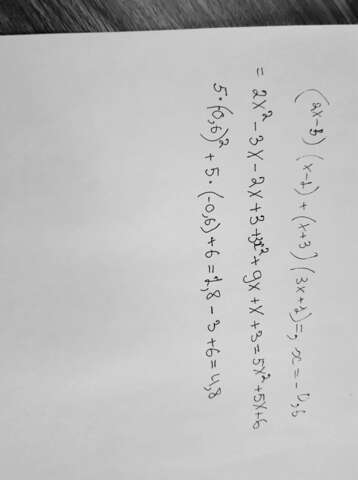 (2x-3)(x-1)+(x+3)(3x+1)=, x=-0,6
= 2x² - 3x - 2x + 3 + 3x² + 9x + x + 3 = 5x² + 5x + 6
5·(0,6)² + 5·(-0,6) + 6 = 1,8 - 3 + 6 = 4,8